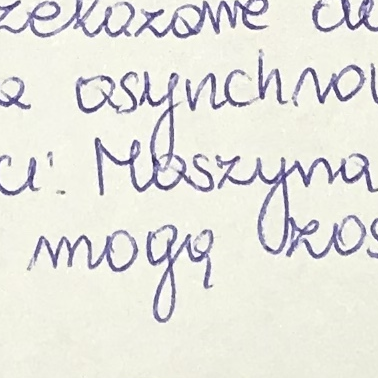 zekazane
a asynchro
ci. Maszyna
mogą zos